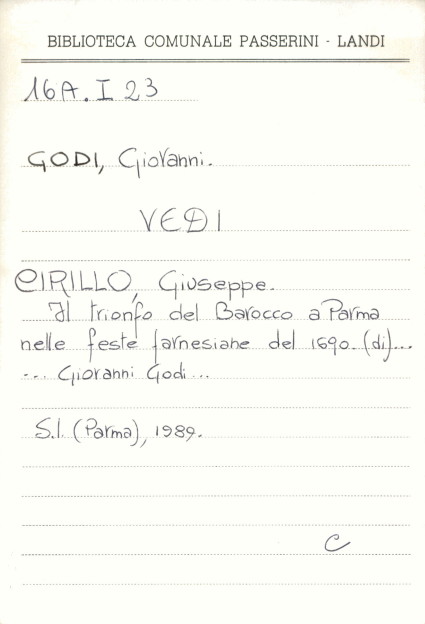 BIBLIOTECA COMUNALE PASSERINI - LANDI
16A. I 23
GODI, Giovanni.
VEDI
CIRILLO, Giuseppe.
Il trionfo del Barocco a Parma
nelle feste farnesiane del 1690. (di)...
... Giovanni Godi...
S.l. (Parma), 1989.
C